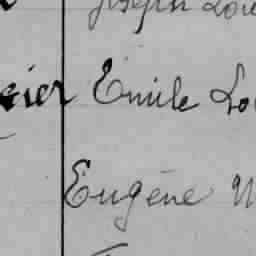 Joseph Lou
eier Emile Lo
Eugène